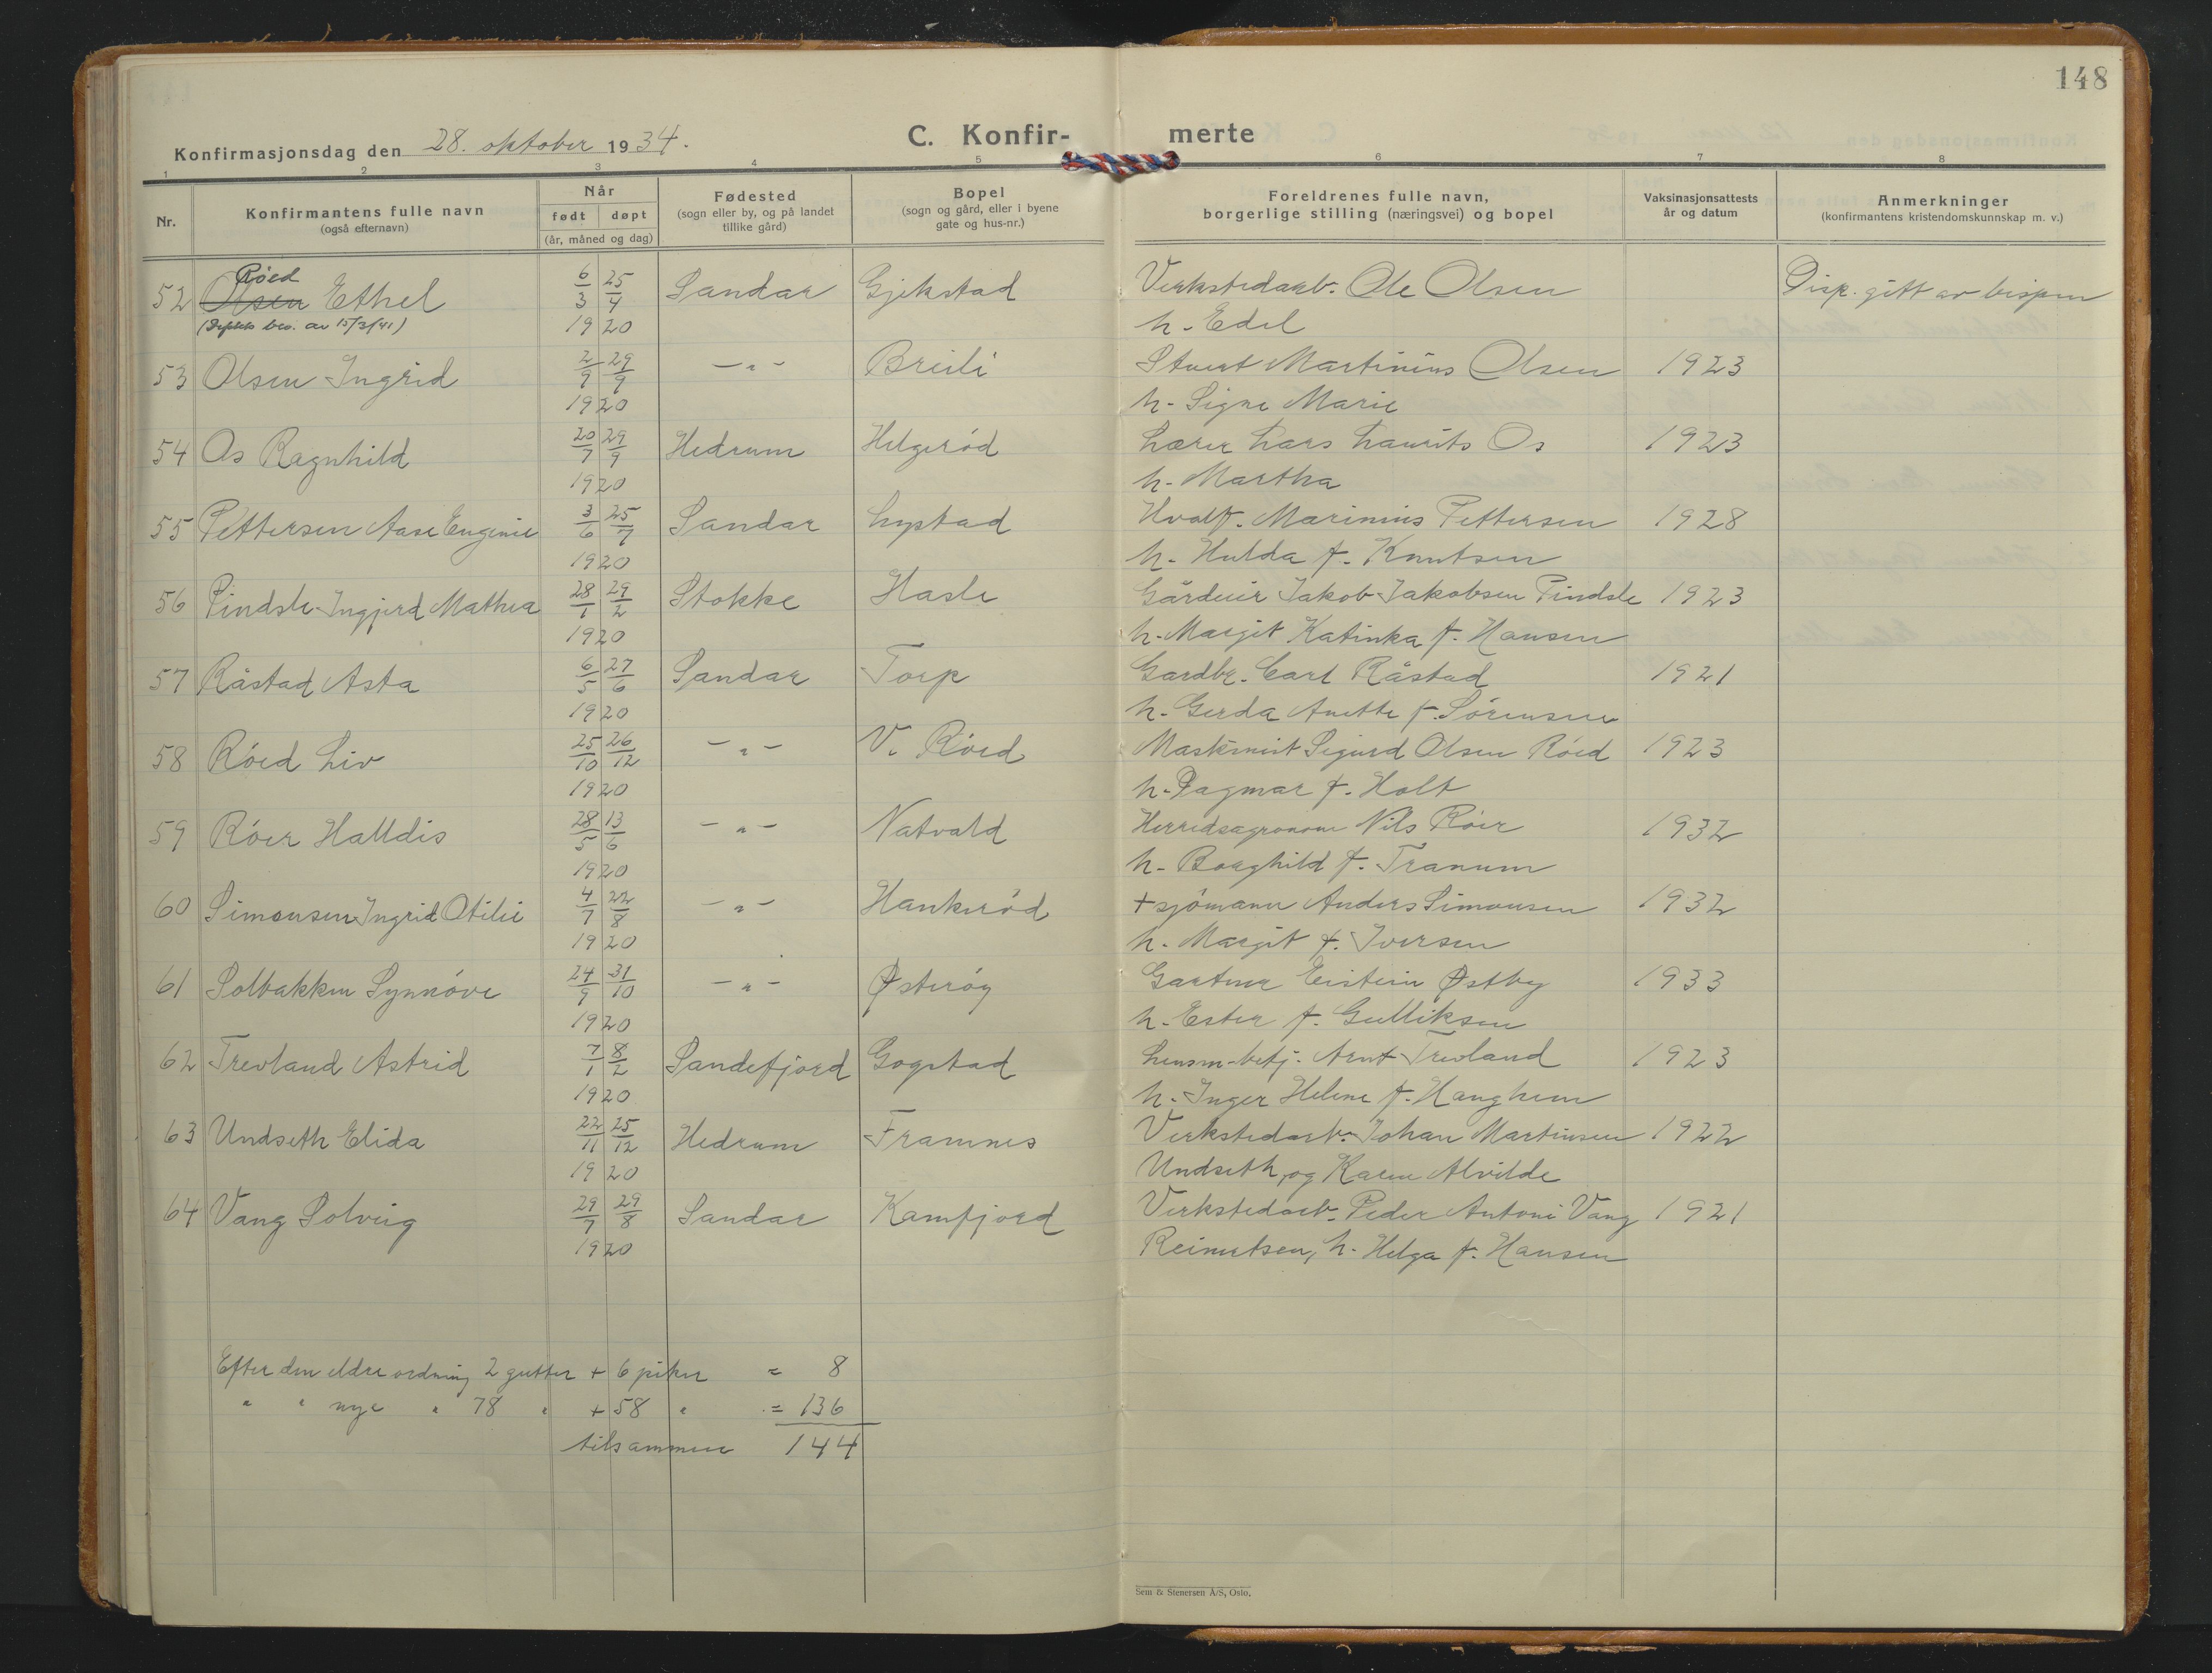 148
Konfirmasjonsdag den 28. oktober 1934.
C. Konfir-
merte
1 2 3 4 5 6 7 8
Nr.
Konfirmantens fulle navn
(også efternavn)
Når
født døpt
(år, måned og dag)
Fødested
(sogn eller by, og på landet
tillike gård)
Bopel
(sogn og gård, eller i byene
gate og hus-nr.)
Foreldrenes fulle navn,
borgerlige stilling (næringsvei) og bopel
Vaksinasjonsattests
år og datum
Anmerkninger
(konfirmantens kristendomskunnskap m. v.)
Röed
52 Olsen Ethel 6/3 25/4 Sandar Gjekstad Verkstedarb. Ole Olsen Disp. gitt av bispen
bev. av 15/3/41) 1920 h. Edel
53 Olsen Ingrid 2/9 29/9 -"- Breili Stuert Martinius Olsen 1923
1920 h. Signe Marie
54 Os Ragnhild 20/7 29/9 Hedrum Helgeröd Lærer Lars Laurits Os 1923
1920 h. Martha
55 Pettersen Aase Eugenie 3/6 25/7 Sandar Lystad Hvalf. Marinius Pettersen 1928
1920 h. Hulda f. Knutsen
56 Pindsle Ingjerd Mathea 28/1 29/2 Stokke Hasle Gårdeier Jakob Jakobsen Pindsle 1923
1920 h. Margit Katinka f. Hansen
57 Råstad Asta 6/5 27/6 Sandar Torp Gardbr. Carl Råstad 1921
1920 h. Gerda Anette f. Sörensen
58 Röed Liv 25/10 26/12 -"- V. Röed Maskinist Sigurd Olsen Röed 1923
1920 h. Dagmar f. Holt
59 Röer Halldis 28/5 13/6 -"- Natvald Herredsagronom Nils Röer 1932
1920 h. Borghild f. Tranum
60 Simonsen Ingrid Otilie 4/7 22/8 -"- Haukeröd + sjömann Anders Simonsen 1932
1920 h. Margit f. Iversen
61 Solbakken Synnöve 24/9 31/10 -"- Østeröy Gartner Eistein Østby 1933
1920 h. Ester f. Gulliksen
62 Trevland Astrid 7/1 8/2 Sandefjord Gogstad Lensm-betj. Arnt Trevland 1923
1920 h. Inger Helene f. Haughem
63 Undseth Elida 22/11 25/12 Hedrum Framnes Verkstedarb. Johan Martinsen 1922
1920 Undseth, og Karen Alvilde
64 Vang Solveig 29/7 29/8 Sandar Kamfjord Verkstedarb. Peder Antoni Vang 1921
1920 Reimertsen, h. Helga f. Hansen
Efter den eldre ordning 2 gutter + 6 piker = 8
" " nye " 78 " + 58 " = 136
tilsammen 144
Sem & Stenersen A/S, Oslo.